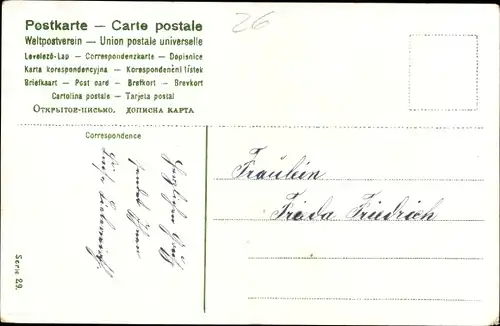 Postkarte — Carte postale
26
Weltpostverein — Union postale universelle
Levelező-Lap — Correspondenzkarte — Dopisnice
Karta korespondencyjna — Korespondenční lístek
Briefkaart — Post card — Brefkort — Brevkort
Cartolina postale — Tarjeta postal
Открытое-письмо. дописна карта
Correspondence
Fräulein
Frieda Friedrich
Serie 29.